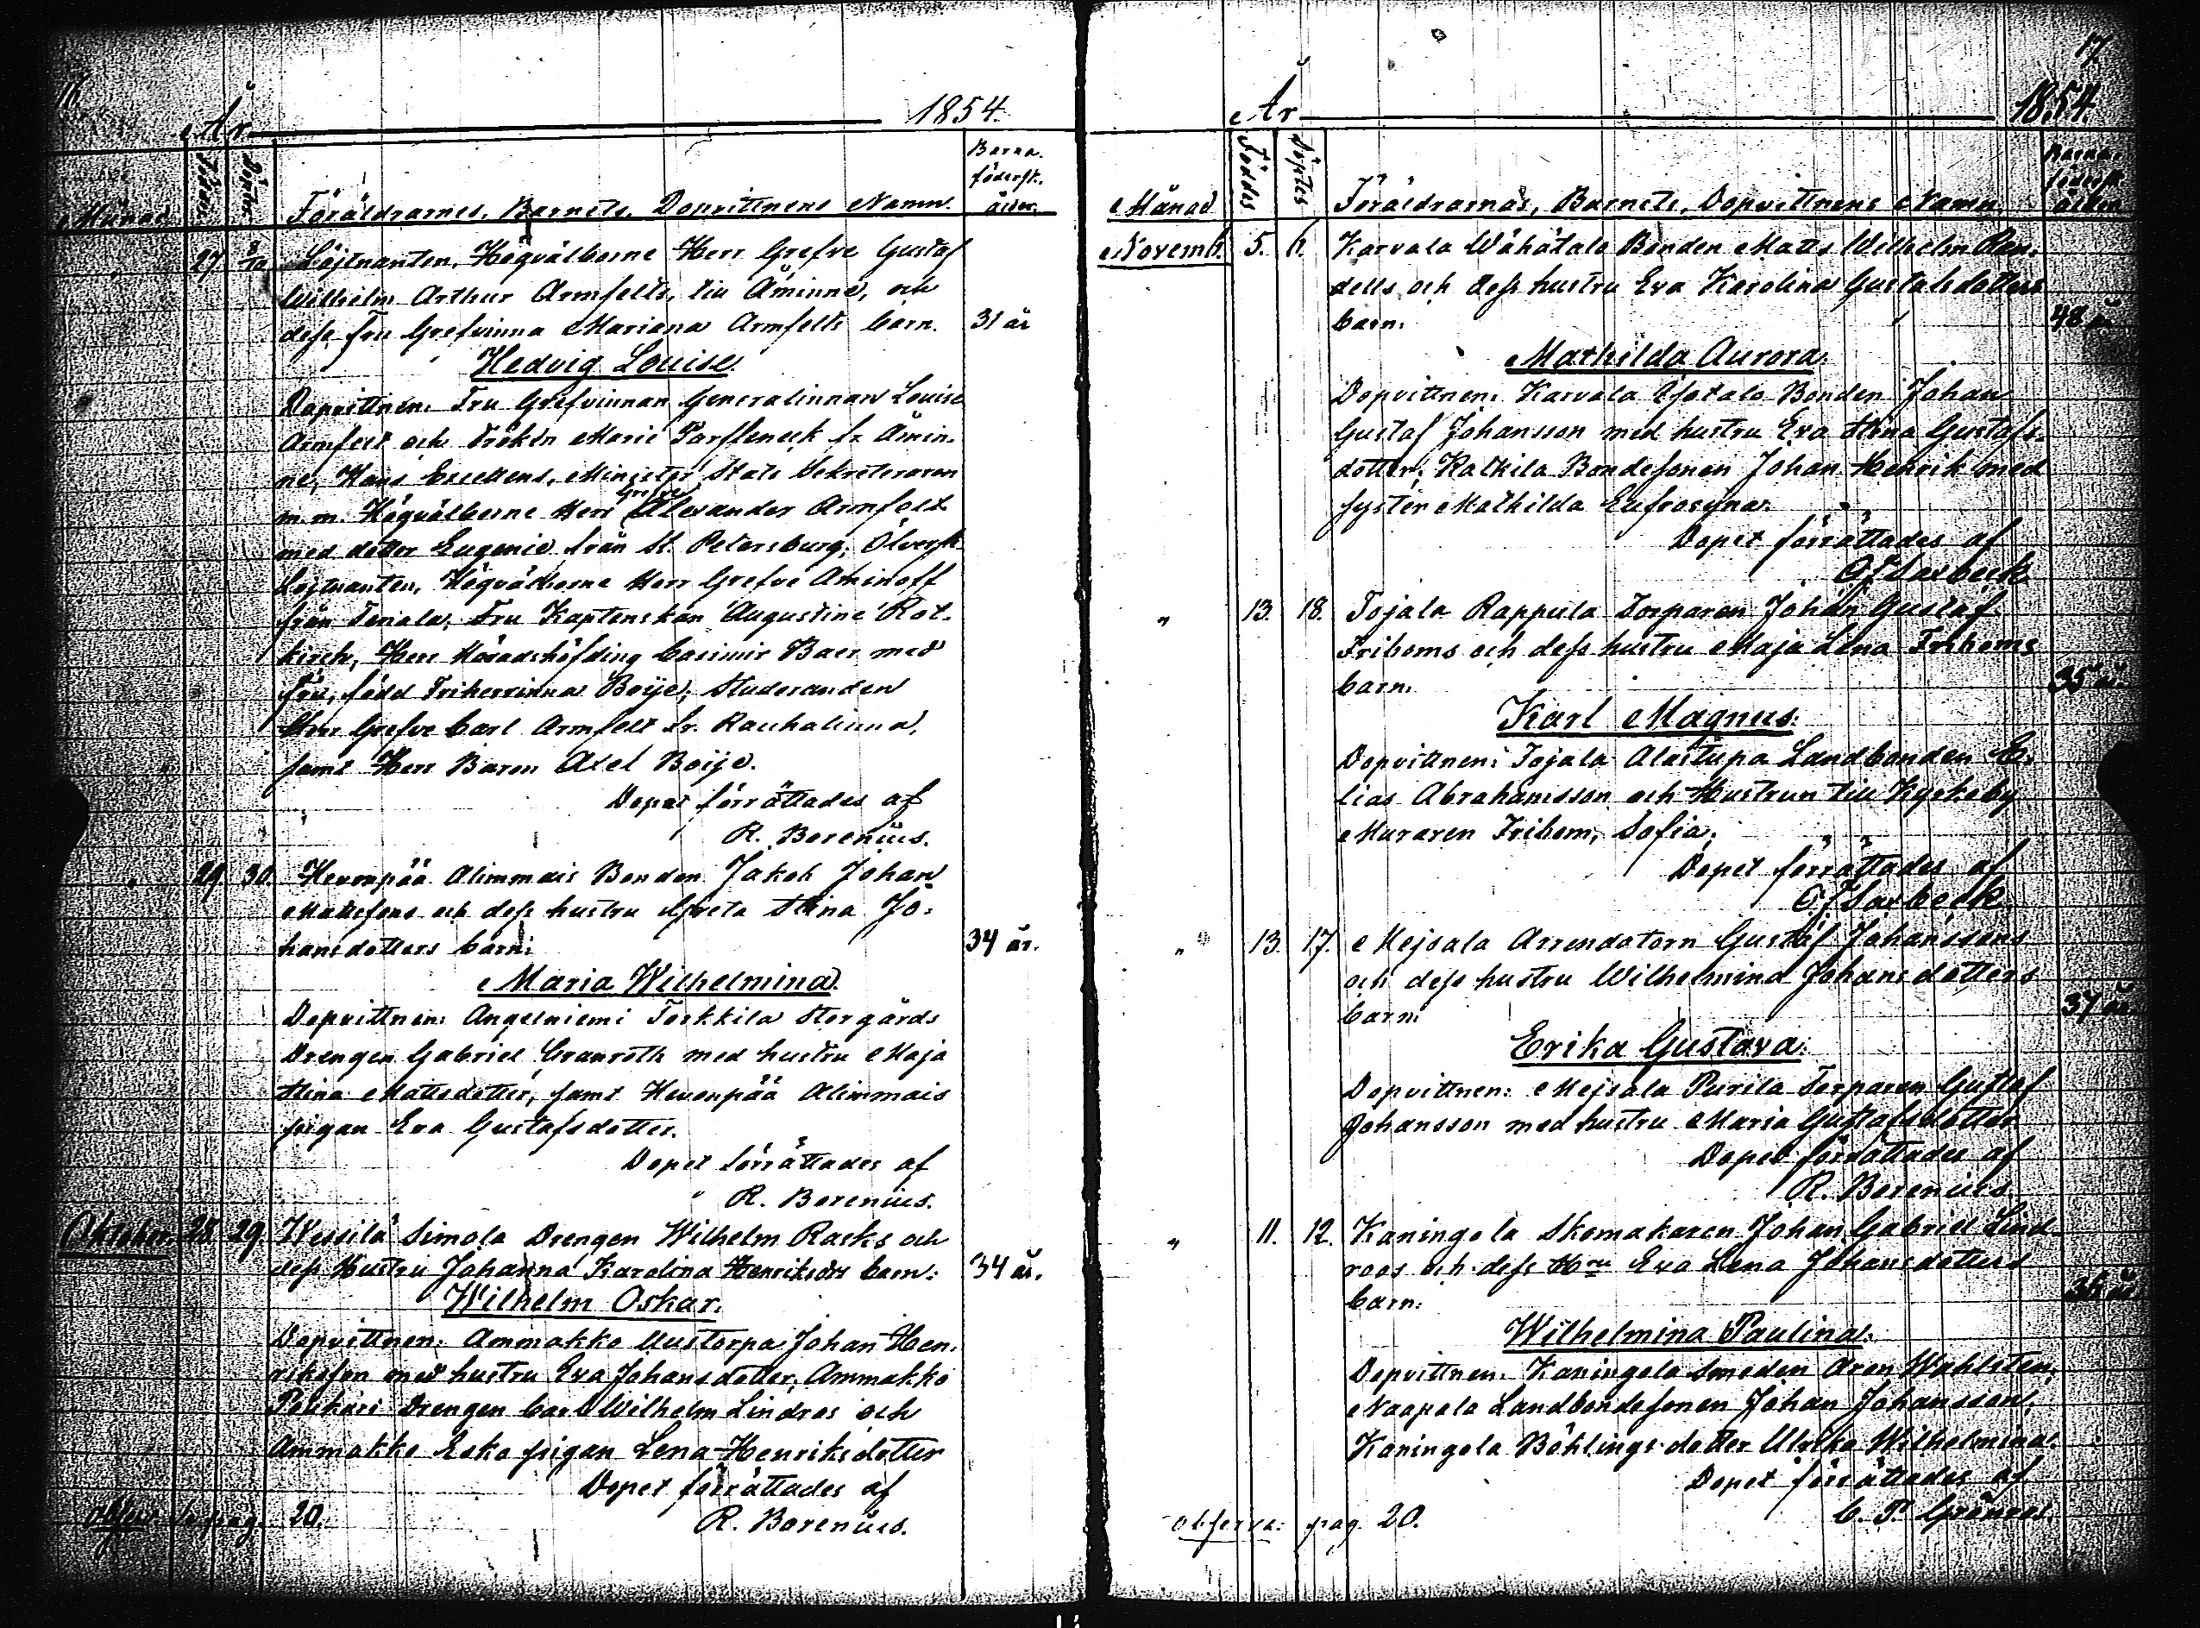 16
År 1854.
Månad Föddes Döptes Föräldrarnes, Barnets, Dopvittnens Namn. Barna-födersk. ålder.
" 27 8/10 Löjtnanten, Högvälborne Herr Grefve Gustaf
Wilhelm Arthur Armfelts, till Åminne, och
dess Fru Grefvinna Mariana Armfelts barn. 31 år
Hedvig Louise.
Dopvittnen: Fru Grefvinnan Generalinnan Louise
Armfelt och Fröken Marie Parfleneek fr. Åmin-
ne, Hans Excellens, Minister Stats Sekreteraren
m.m. Högvälborne Herr Grefve Alexander Armfelt
med dotter Eugenie från St. Petersburg; Öfverst-
Löjtnanten, Högvälborne Herr Grefve Aminoff
från Tenala, Fru Kaptenskan Augustine Rot-
kirch, Herr Häradshöfding Casimir Baer med
Fru, född Friherrinna Boije; Studeranden
Herr Grefve Carl Armfelt fr. Rauhalinna,
samt Herr Baron Axel Boije.
Dopet förrättades af
R. Borenius.
" 29. 30. Hevonpää Alimmais Bonden Jakob Johan
Mattssons och dess hustru Greta Stina Jo-
hansdotters barn: 34 år.
Maria Wilhelmina.
Dopvittnen: Angelniemi Torkkila Storgårds
Drengen Gabriel Granroth med hustru Maja
Stina Mattsdotter, samt Hevonpää Alimmais
pigan Eva Gustafsdotter.
Dopet förrättades af
R. Borenius.
Oktober. 28. 29. Wessilä Simola Drengen Wilhelm Rasks och
dess Hustru Johanna Karolina Henriksdrs barn: 34 år.
Wilhelm Oskar.
Dopvittnen: Ammakko Uustorpa Johan Hen-
riksson med hustru Eva Johansdotter, Ammakko
Peuhari Drengen Carl Wilhelm Lindros och
Ammakko Esko pigan Lena Henriksdotter
Dopet förrättades af
R. Borenius.
pag. 20.
17.
År 1854.
Månad Föddes Döptes Föräldrarnas, Barnets, Dopvittnens Namn. Barna-födersk. ålder
Novemb. 5. 6. Karvala Wähätalo Bonden Matts Wilhelm Ren-
dells och dess hustru Eva Karolina Gustafsdotters
barn: 48 år.
Mathilda Aurora.
Dopvittnen: Karvala Isotalo Bonden Johan
Gustaf Johansson med hustru Eva Stina Gustafs-
dotter; Katkila Bondesonen Johan Henrik med
syster Mathilda Eufrosyna.
Dopet förrättades af
" 13. 18. Tojala Rappula Torparen Johan Gustaf
Friboms och dess hustru Maja Lena Friboms
barn. 35 år.
Karl Magnus.
Dopvittnen: Tojala Alastupa Landbonden E-
lias Abrahamsson och Hustrun till Kyrkoby
Muraren Fribom, Sofia.
Dopet förrättades af
" 13. 17. Mejsala Arrendatorn Gustaf Johanssons
och dess hustru Wilhelmina Johansdotters
barn: 37 år.
Erika Gustava.
Dopvittnen: Mejsala Purila Torparen Gustaf
Johansson med hustru Maria Gustafsdotter
Dopet förrättades af
R. Borenius.
" 11. 12. Kaningola Skomakaren Johan Gabriel Lind-
roos och dess Hru Eva Lena Johansdotters
barn: 36 år.
Wilhelmina Paulina.
Dopvittnen: Kaningola Smeden Aron Wahlsten,
Naapala Landbondesonen Johan Johansson,
Kaningola Böhlings dotter Ulrika Wilhelmina.
Dopet förrättades af
C. F. Grönros.
observa: pag. 20.